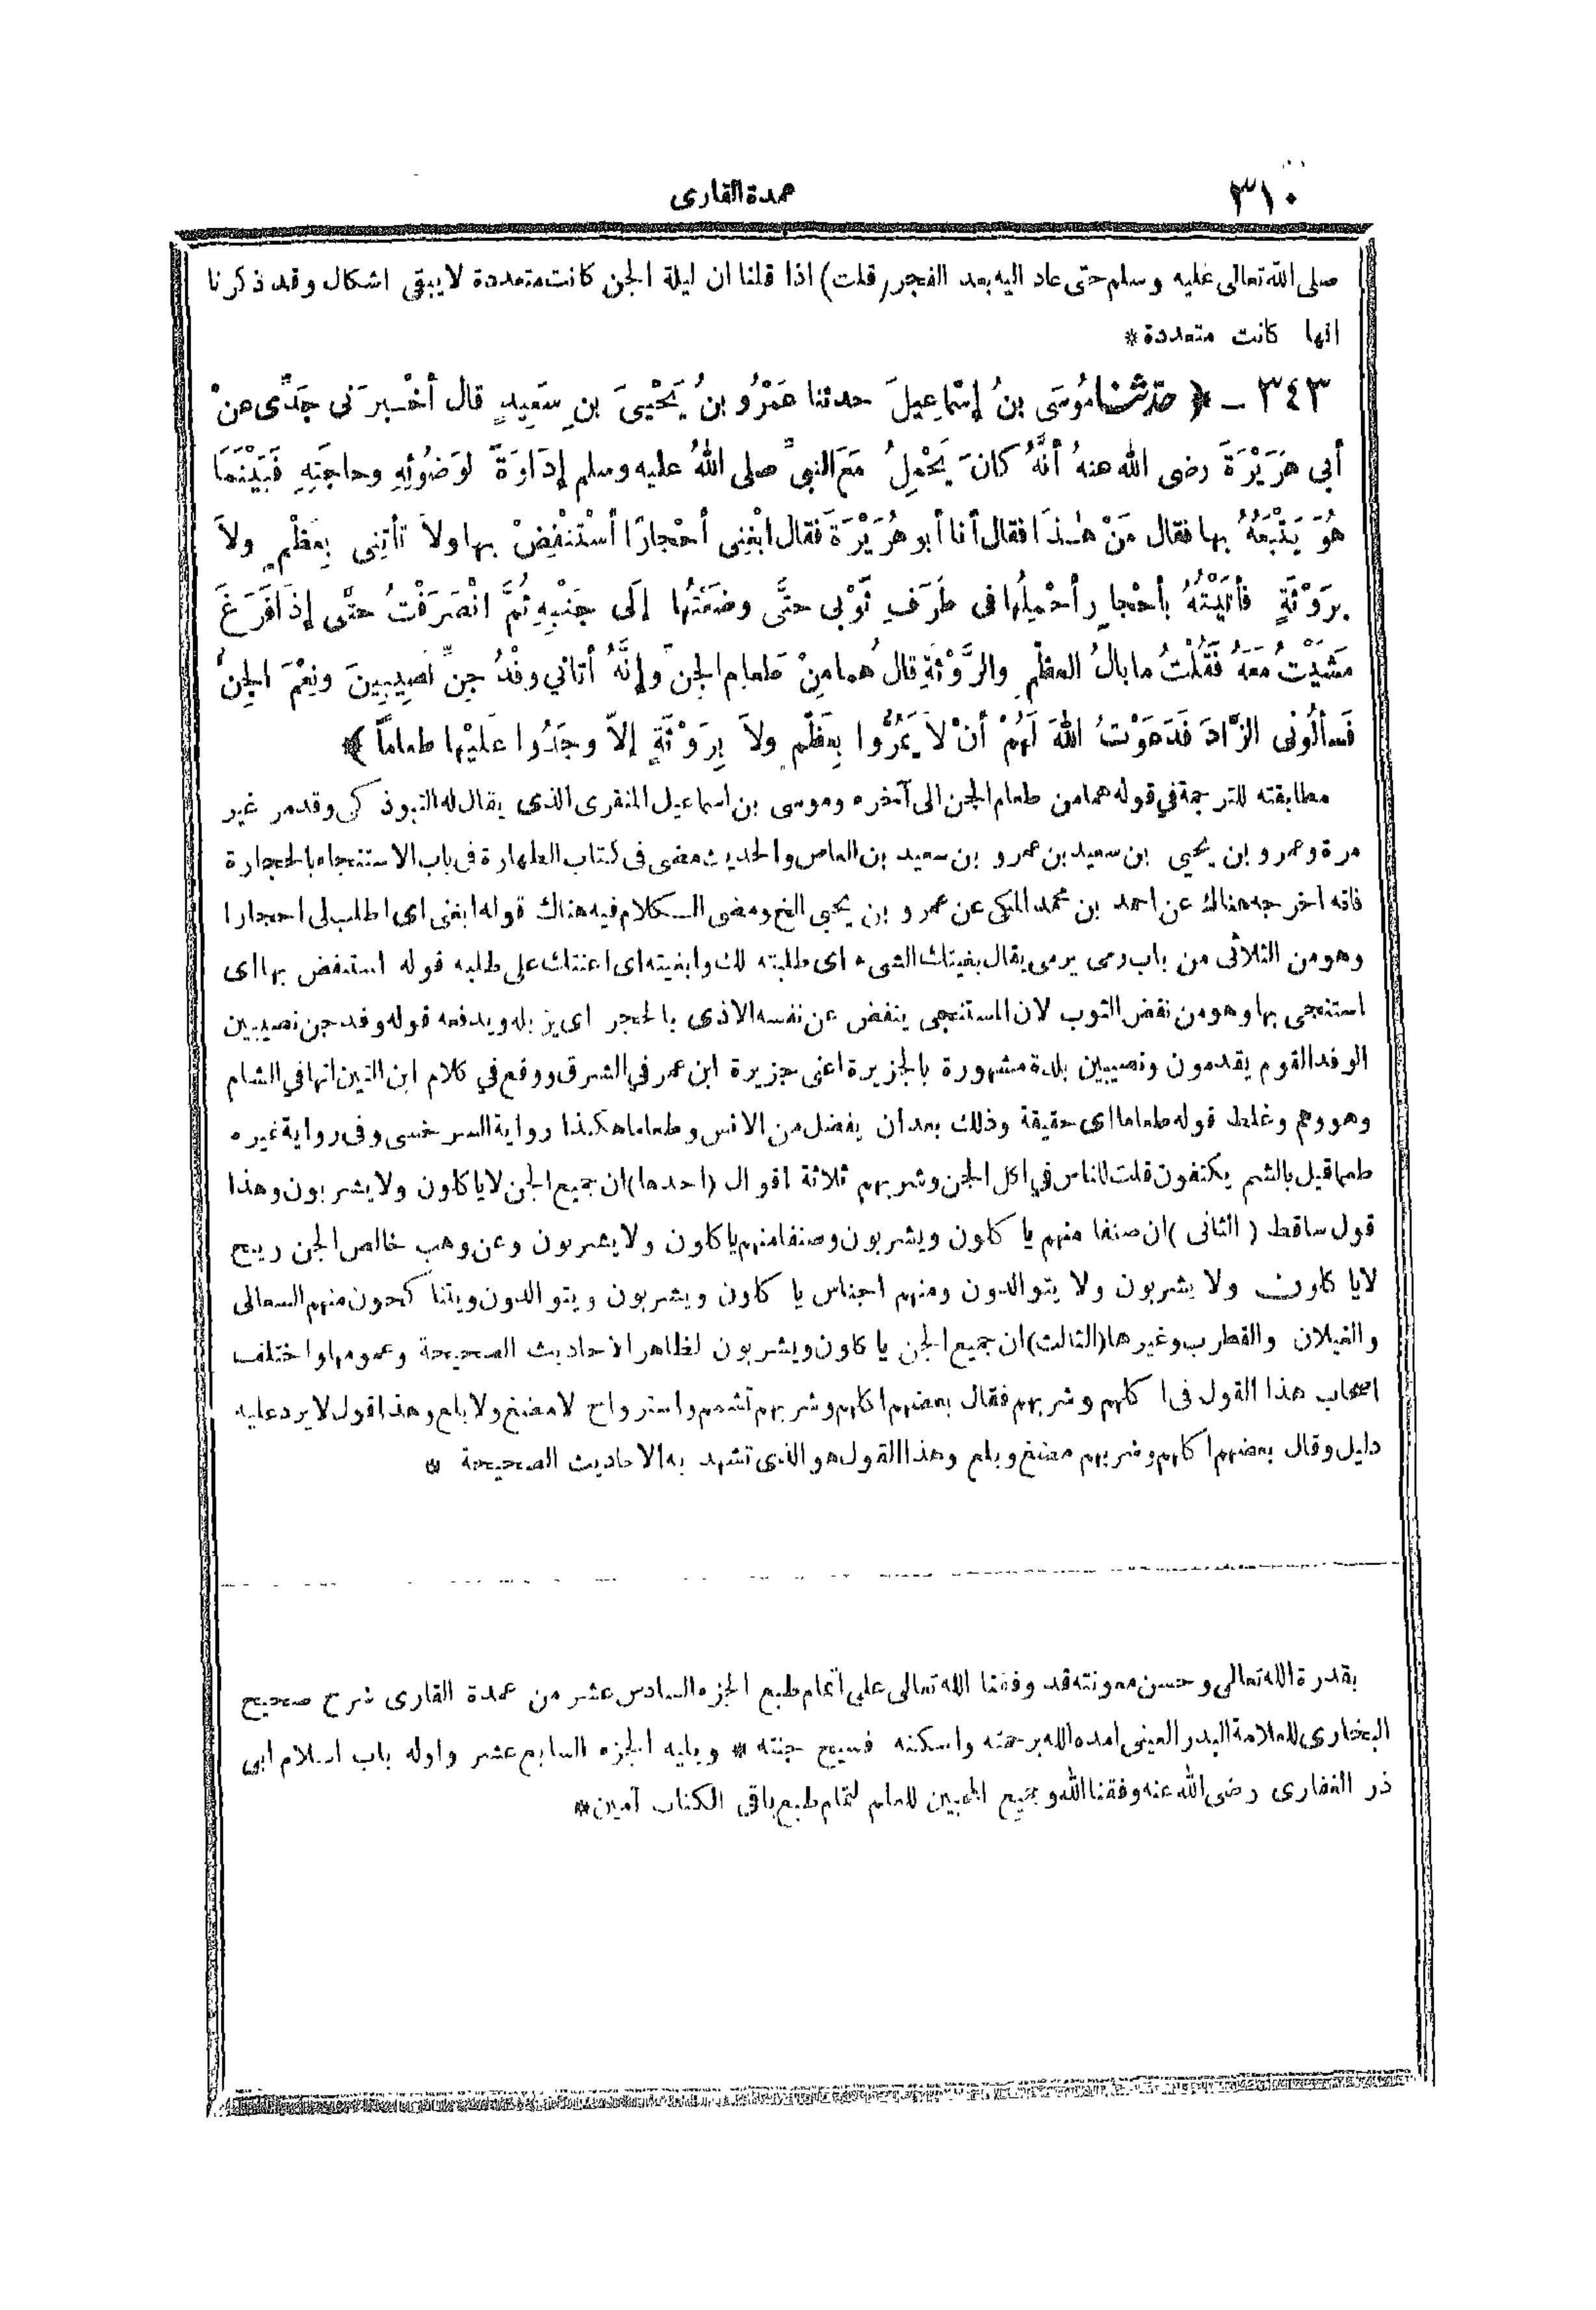 ٣١٠
عمدة القارى
صلى الله تعالى عليه وسلم حتى عاد اليه بعد الفجر (قلت) اذا قلنا ان ليلة الجن كانت متعددة لا يبقى اشكال وقد ذكرنا
انها كانت متعددة *
٣٤٣ ـ ﴿ حَدَّثَنَا مُوسَى بنُ إسْمَاعِيلَ حدثنا عَمْرُو بنُ يَحْيىَ بنِ سَعِيدٍ قال أخْبرَنى جَدِّى عنْ
أبي هُرَيْرَةَ رضى الله عنهُ أنَّهُ كانَ يَحْمِلُ مَعَ النبىِّ صلى اللهُ عليه وسلم إدَاوَةً لِوَضُوئِهِ وحاجَتِهِ فَبَيْنَمَا
هُوَ يَتْبَعُهُ بها فقال مَنْ هٰذَا فقال أنا أبو هُرَيْرَةَ فقال ابْغِنِى أحْجارًا أسْتَنْفِضْ بها ولاَ تأتِنِى بِعَظْمٍ ولاَ
بِرَوْثَةٍ فأتَيْتُهُ بأحْجارٍ أحْمِلُها فى طَرَفِ ثَوْبى حتَّى وضَعْتُها إلَى جَنْبِهِ ثُمَّ انْصَرَفْتُ حتَّى إذَا فَرَغَ
مَشَيْتُ مَعَهُ فَقُلْتُ ما بالُ العَظْمِ والرَّوْثَةِ قال هُما مِنْ طَعامِ الجِنِّ وإنَّهُ أتاني وفْدُ جِنِّ نَصِيبِينَ ونِعْمَ الجِنُّ
فَسألُونى الزَّادَ فَدَعَوْتُ اللهَ لَهُمْ أنْ لاَ يَمُرُّوا بِعَظْمٍ ولاَ بِرَوْثَةٍ إلاَّ وجَدُوا عَلَيْها طعاماً ﴾ *
مطابقته للترجمة في قوله هما من طعام الجن الى آخره وموسى بن اسماعيل المنقرى الذى يقال له التبوذكى وقد مر غير
مرة وعمرو بن يحيى بن سعيد بن عمرو بن سعيد بن العاص والحديث مضى فى كتاب الطهارة فى باب الاستنجاء بالحجارة
فانه اخرجه هناك عن احمد بن محمد المكى عن عمرو بن يحيى الخ ومضى الكلام فيه هناك قوله ابغنى اى اطلب لى احجارا
وهو من الثلاثى من باب رمى يرمى يقال بغيتك الشىء اى طلبته لك وابغيته اى اعنتك على طلبه قوله استنفض بها اى
استنجى بها وهو من نفض الثوب لان المستنجى ينفض عن نفسه الاذى بالحجر اى يزيله ويدفعه قوله وفد جن نصيبين
الوفد القوم يقدمون ونصيبين بلدة مشهورة بالجزيرة اعنى جزيرة ابن عمر في الشرق ووقع في كلام ابن التين انها في الشام
وهو وهم وغلط قوله طعاما اى حقيقة وذلك بعد ان يفضل من الانس وطعاما هكذا رواية السرخسى وفى رواية غيره
طعما قيل بالشم يكتفون قلت للناس في اكل الجن وشربهم ثلاثة اقوال (احدها) ان جميع الجن لا ياكلون ولا يشربون وهذا
قول ساقط (الثانى) ان صنفا منهم ياكلون ويشربون وصنفا منهم ياكلون ولا يشربون وعن وهب خالص الجن ريح
لا ياكلون ولا يشربون ولا يتوالدون ومنهم اجناس ياكلون ويشربون ويتوالدون ويتناكحون منهم السعالى
والغيلان والقطرب وغيرها (الثالث) ان جميع الجن ياكلون ويشربون لظاهر الاحاديث الصحيحة وعمومها واختلف
اصحاب هذا القول فى اكلهم وشربهم فقال بعضهم اكلهم وشربهم تشمم واسترواح لا مضغ ولا بلع وهذا قول لا يرد عليه
دليل وقال بعضهم اكلهم وشربهم مضغ وبلع وهذا القول هو الذى تشهد به الاحاديث الصحيحة *
بقدرة الله تعالى وحسن معونته قد وفقنا الله تعالى على اتمام طبع الجزء السادس عشر من عمدة القارى شرح صحيح
البخارى للعلامة البدر العينى امده الله برحمته واسكنه فسيح جنته * ويليه الجزء السابع عشر واوله باب اسلام ابى
ذر الغفارى رضى الله عنه وفقنا الله وجميع المحبين للعلم لتمام طبع باقى الكتاب آمين *